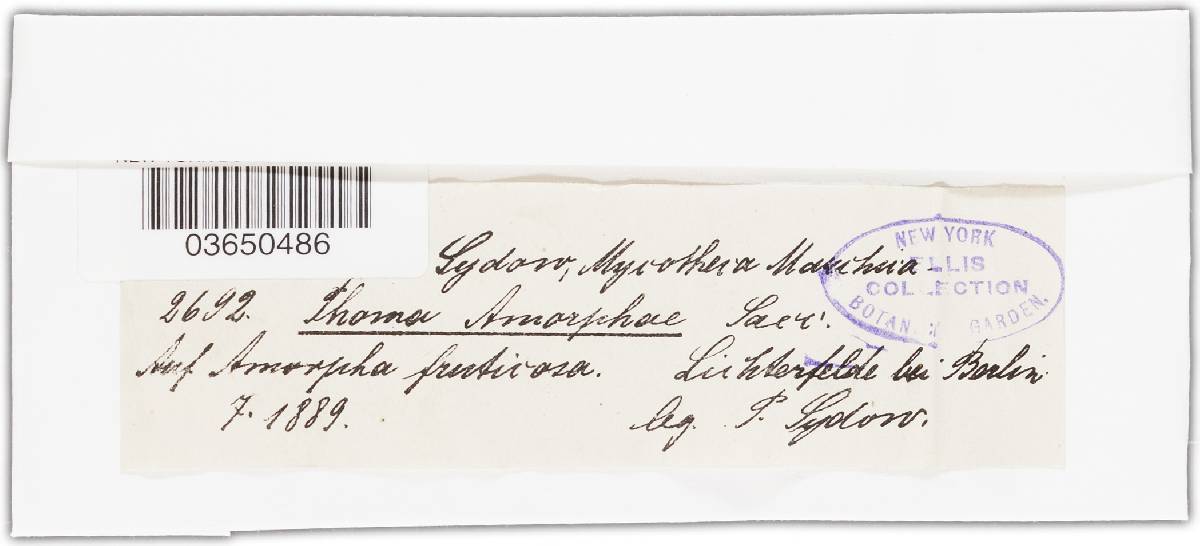 03650486
Sydow, Mycotheca Marchica
NEW YORK
ELLIS
COLLECTION
BOTAN GARDEN.
2692. Phoma Amorphae Sacc.
Auf Amorpha fruticosa. Lichterfelde bei Berlin
7. 1889. leg. P. Sydow.